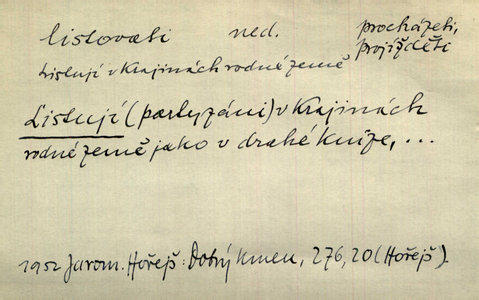 listovati ned. procházeti,
projížděti
Listují v krajinách rodné země
Listují (partyzáni) v krajinách
rodné země jako v drahé knize, ...
1952 Jarom. Hořejš: Dobrý kmen, 276, 20 (Hořejš).